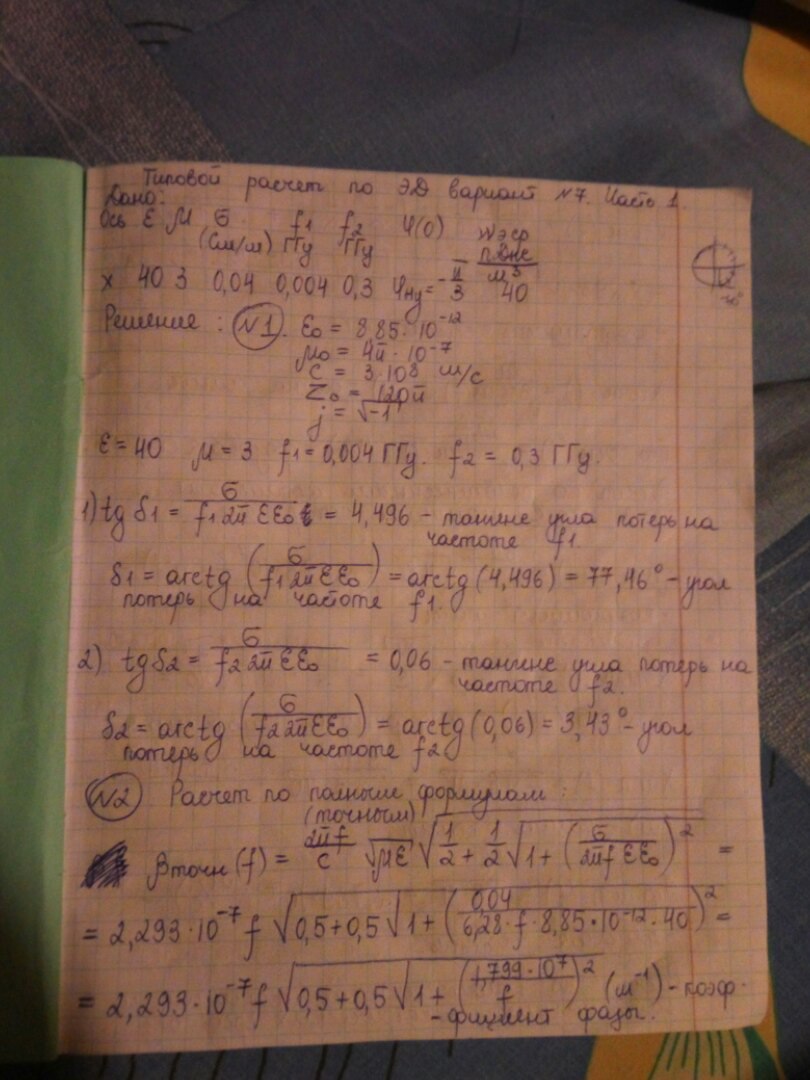 Типовой расчет по ЭД вариант №7. Часть 1.
Дано:
Ось ε μ σ f1 f2 Ψ(0) Wэср
(См/м) ГГц ГГц пДж/м³
x 40 3 0,04 0,004 0,3 φну = -π/3 40
Решение: №1. ε₀ = 8,85·10⁻¹²
μ₀ = 4π·10⁻⁷
c = 3·10⁸ м/с
Z₀ = 120π
j = √-1
ε = 40 μ = 3 f1 = 0,004 ГГц. f2 = 0,3 ГГц.
1) tg δ1 = σ/(f1 2π εε₀) = 4,496 - тангенс угла потерь на
частоте f1.
δ1 = arctg (σ/(f1 2π εε₀)) = arctg (4,496) = 77,46° - угол
потерь на частоте f1.
2) tg δ2 = σ/(f2 2π εε₀) = 0,06 - тангенс угла потерь на
частоте f2.
δ2 = arctg (σ/(f2 2π εε₀)) = arctg (0,06) = 3,43° - угол
потерь на частоте f2
№2 Расчет по полным формулам:
(точным)
βточн (f) = 2πf/c √με √(1/2 + 1/2 √(1 + (σ/(2πf εε₀))²)) =
= 2,293·10⁻⁷ f √(0,5 + 0,5 √(1 + (0,04/(6,28·f·8,85·10⁻¹²·40))²)) =
= 2,293·10⁻⁷ f √(0,5 + 0,5 √(1 + (1,799·10⁷/f)²)) (м⁻¹) - коэф-
-фициент фазы.